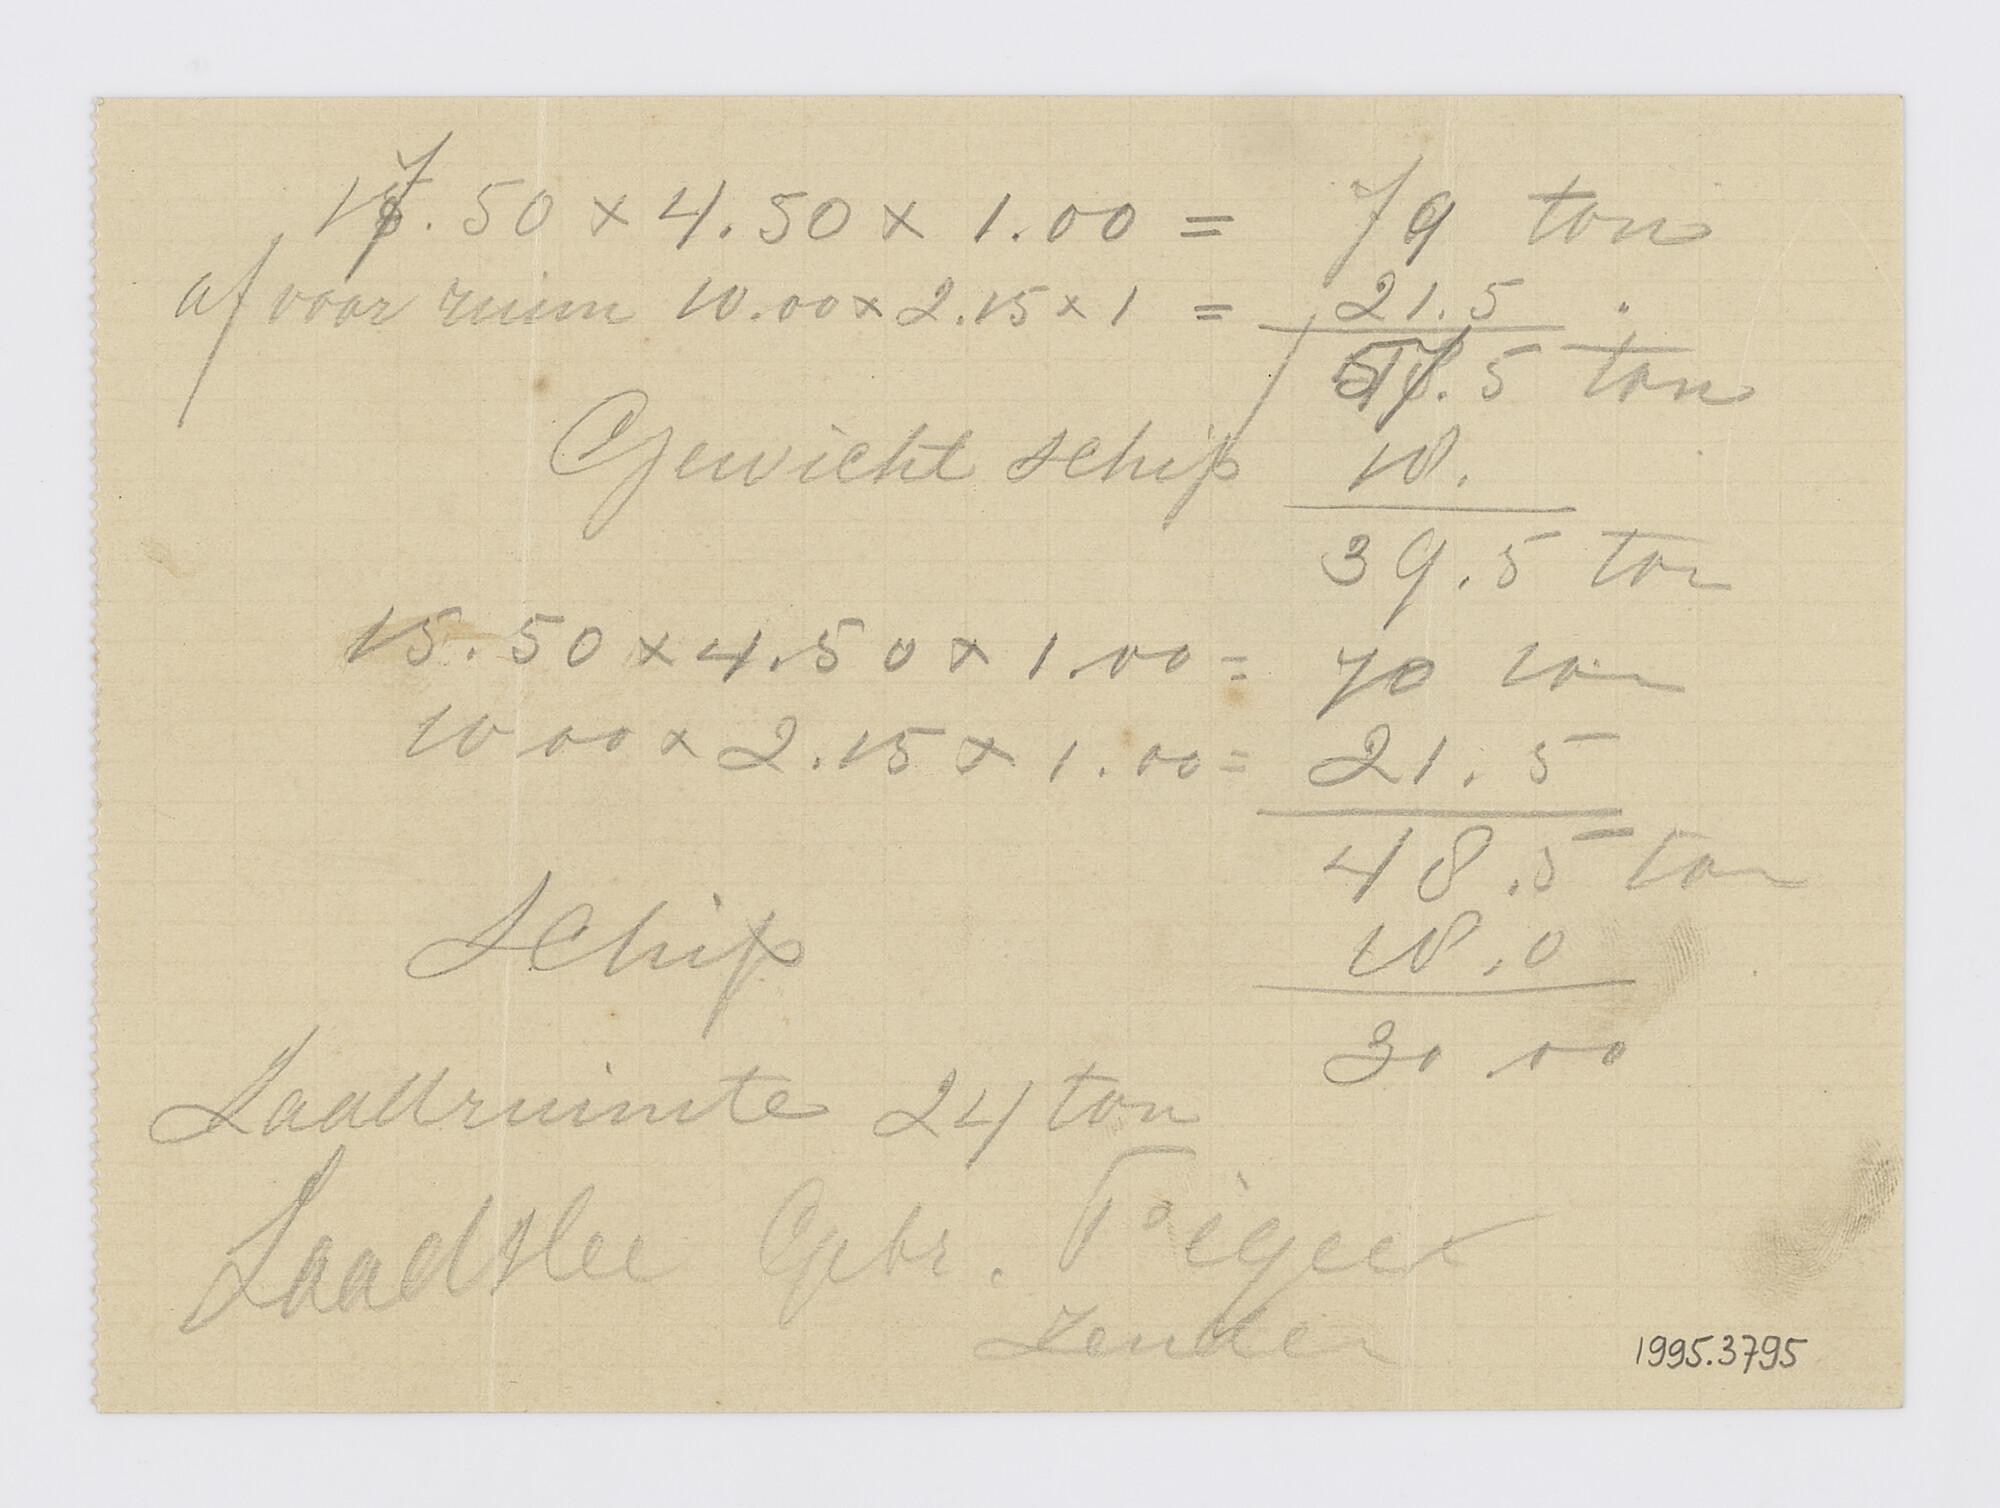 17.50 x 4.50 x 1.00 = 79 ton
af voor ruim 10.00 x 2.15 x 1 = 21.5 "
57.5 ton
Gewicht schip 18.
39.5 ton
15.50 x 4.50 x 1.00 = 70 ton
10 00 x 2.15 x 1.00 = 21.5
48.5 ton
Schip 18.0
30.00
Laadruimte 24 ton
Laadslee Gebr.
1995.3795